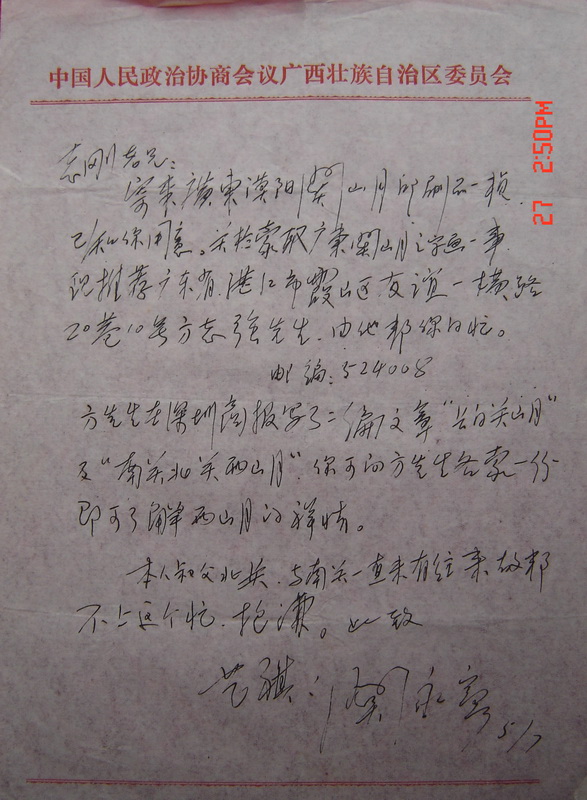 中国人民政治协商会议广西壮族自治区委员会
27 2:50PM
志刚老兄：
寄来廣東漠阳關山月印刷品一损
已和你用意。关於索取广东關山月之字画一事
现推荐广东省湛江市霞山区友谊一横路
20巷10号方志强先生，由他帮你的忙。
邮编：524008
方先生在深圳商报写了二偏文章“关山月”
及“南关北关两山月”。你可向方先生各索一份
即可了解两山月的祥情。
本人和父北关，与南关一直未有往来故帮
不上这个忙，抱谦。此致
艺祺：關永
5/7